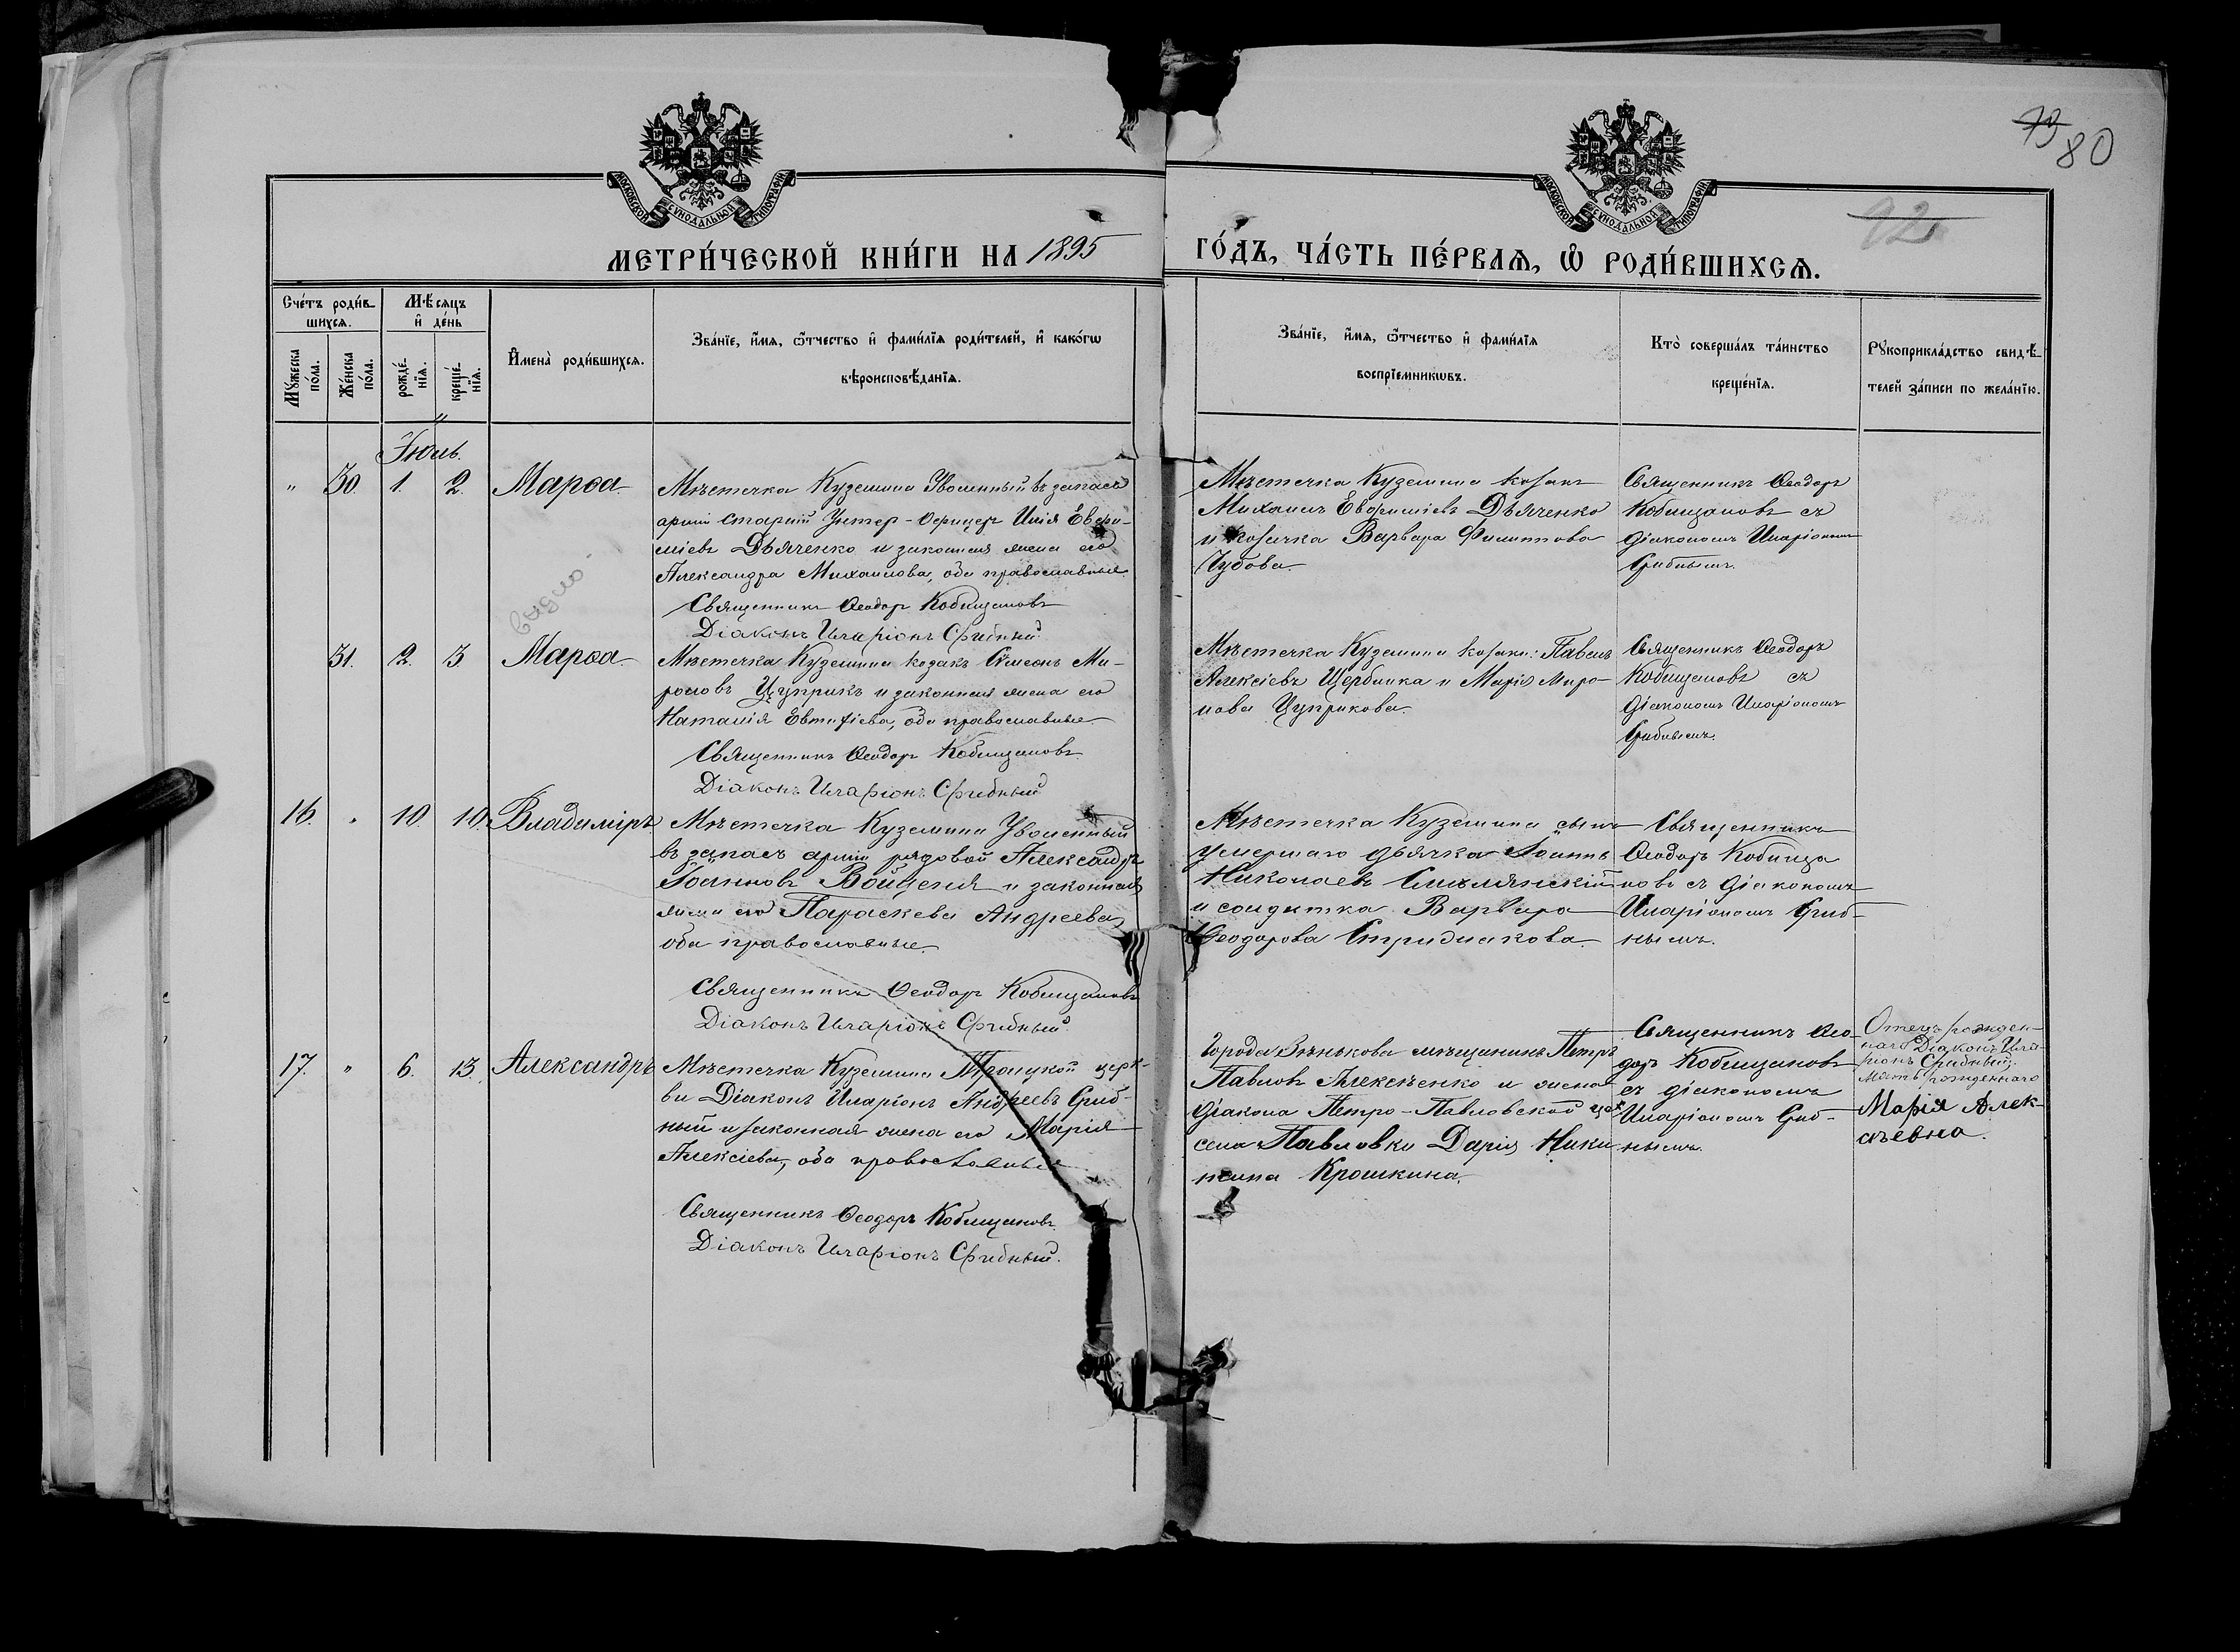 79 80
92
МОСКОВСКОЙ СѴНОДАЛЬНОЙ ТИПОГРАФІИ
МОСКОВСКОЙ СѴНОДАЛЬНОЙ ТИПОГРАФІИ
МЕТРИ́ЧЕСКОЙ КНИ́ГИ НА 1895 ГО́ДЪ, ЧА́СТЬ ПЕ́РВАѦ, Ѡ҆ РОДИ́ВШИХСѦ.
Сче́тъ роди́в-
шихсѧ.
Мѣ́сѧцъ
и҆ де́нь
Мꙋ́жеска по́ла.
Же́нска по́ла.
рожде́-
нїѧ.
креще́-
нїѧ.
И҆мена̀ роди́вшихсѧ.
Зва́нїе, и҆́мѧ, ѻ҆́тчество и҆ фами́лїѧ роди́телей, и҆ како́гѡ
вѣроисповѣ́данїѧ.
Зва́нїе, и҆́мѧ, ѻ҆́тчество и҆ фами́лїѧ
воспрїемникѡвъ.
Кто̀ соверша́лъ та́инство
креще́нїѧ.
Рꙋкоприкла́дство свидѣ́-
телей за́писи по жела́нїю.
Іюль.
" 30. 1. 2. Марѳа
Мѣстечка Куземина Уволенный въ запасъ
арміи старшій Унтер-Офицеръ Илія Евѳи-
міевъ Дьяченко и законная жена его
Александра Михаилова, оба православные.
Священникъ Ѳеодоръ Кобищановъ
Діаконъ Иларіонъ Срибный.
Мѣстечка Куземина козакъ
Михаилъ Евѳиміевъ Дьяченко
и козачка Варвара Филиппова
Чубова.
Священникъ Ѳеодоръ
Кобищановъ съ
діакономъ Иларіономъ
Срибнымъ.
видно
31. 2. 3. Марѳа
Мѣстечка Куземина козакъ Симеонъ Ми-
роновъ Цуприкъ и законная жена его
Наталія Евтихіева, оба православные
Священникъ Ѳеодоръ Кобищановъ
Діаконъ Иларіонъ Срибный
Мѣстечка Куземина козаки: Павелъ
Алексіевъ Щербинка и Марія Миро-
нова Цуприкова.
Священникъ Ѳеодоръ
Кобищановъ съ
діакономъ Иларіономъ
Срибнымъ.
16. " 10. 10. Владиміръ
Мѣстечка Куземина Уволенный
въ запасъ арміи рядовой Александръ
Іоанновъ Войценя и законная
жена его Параскева Андреева,
оба православные.
Священникъ Ѳеодоръ Кобищановъ
Діаконъ Иларіонъ Срибный.
Мѣстечка Куземина сынъ
умершаго дьячка Іоаннъ
Николаевъ
и солдатка Варвара
Ѳеодорова
Священникъ
Ѳеодоръ Кобища
новъ съ діакономъ
Иларіономъ Сриб-
нымъ.
17. " 6. 13. Александръ
Мѣстечка Куземина Троицкой церк-
ви Діаконъ Иларіонъ Андреевъ Сриб-
ный и законная жена его Марія
Алексіева, оба православные
Священникъ Ѳеодоръ Кобищановъ
Діаконъ Иларіонъ Срибный.
Города Зѣнькова мѣщанинъ Петръ
Павловъ Алексѣенко и жена
діакона Петро-Павловской цер.
села Павловки Дарія Ники
тина Крошкина.
Священникъ Ѳео-
доръ Кобищановъ
съ діакономъ
Иларіономъ Сриб-
нымъ.
Отецъ рожден-
наго Діаконъ Ила-
ріонъ Срибный;
Мать рожденнаго
Марія Алек-
сѣевна.